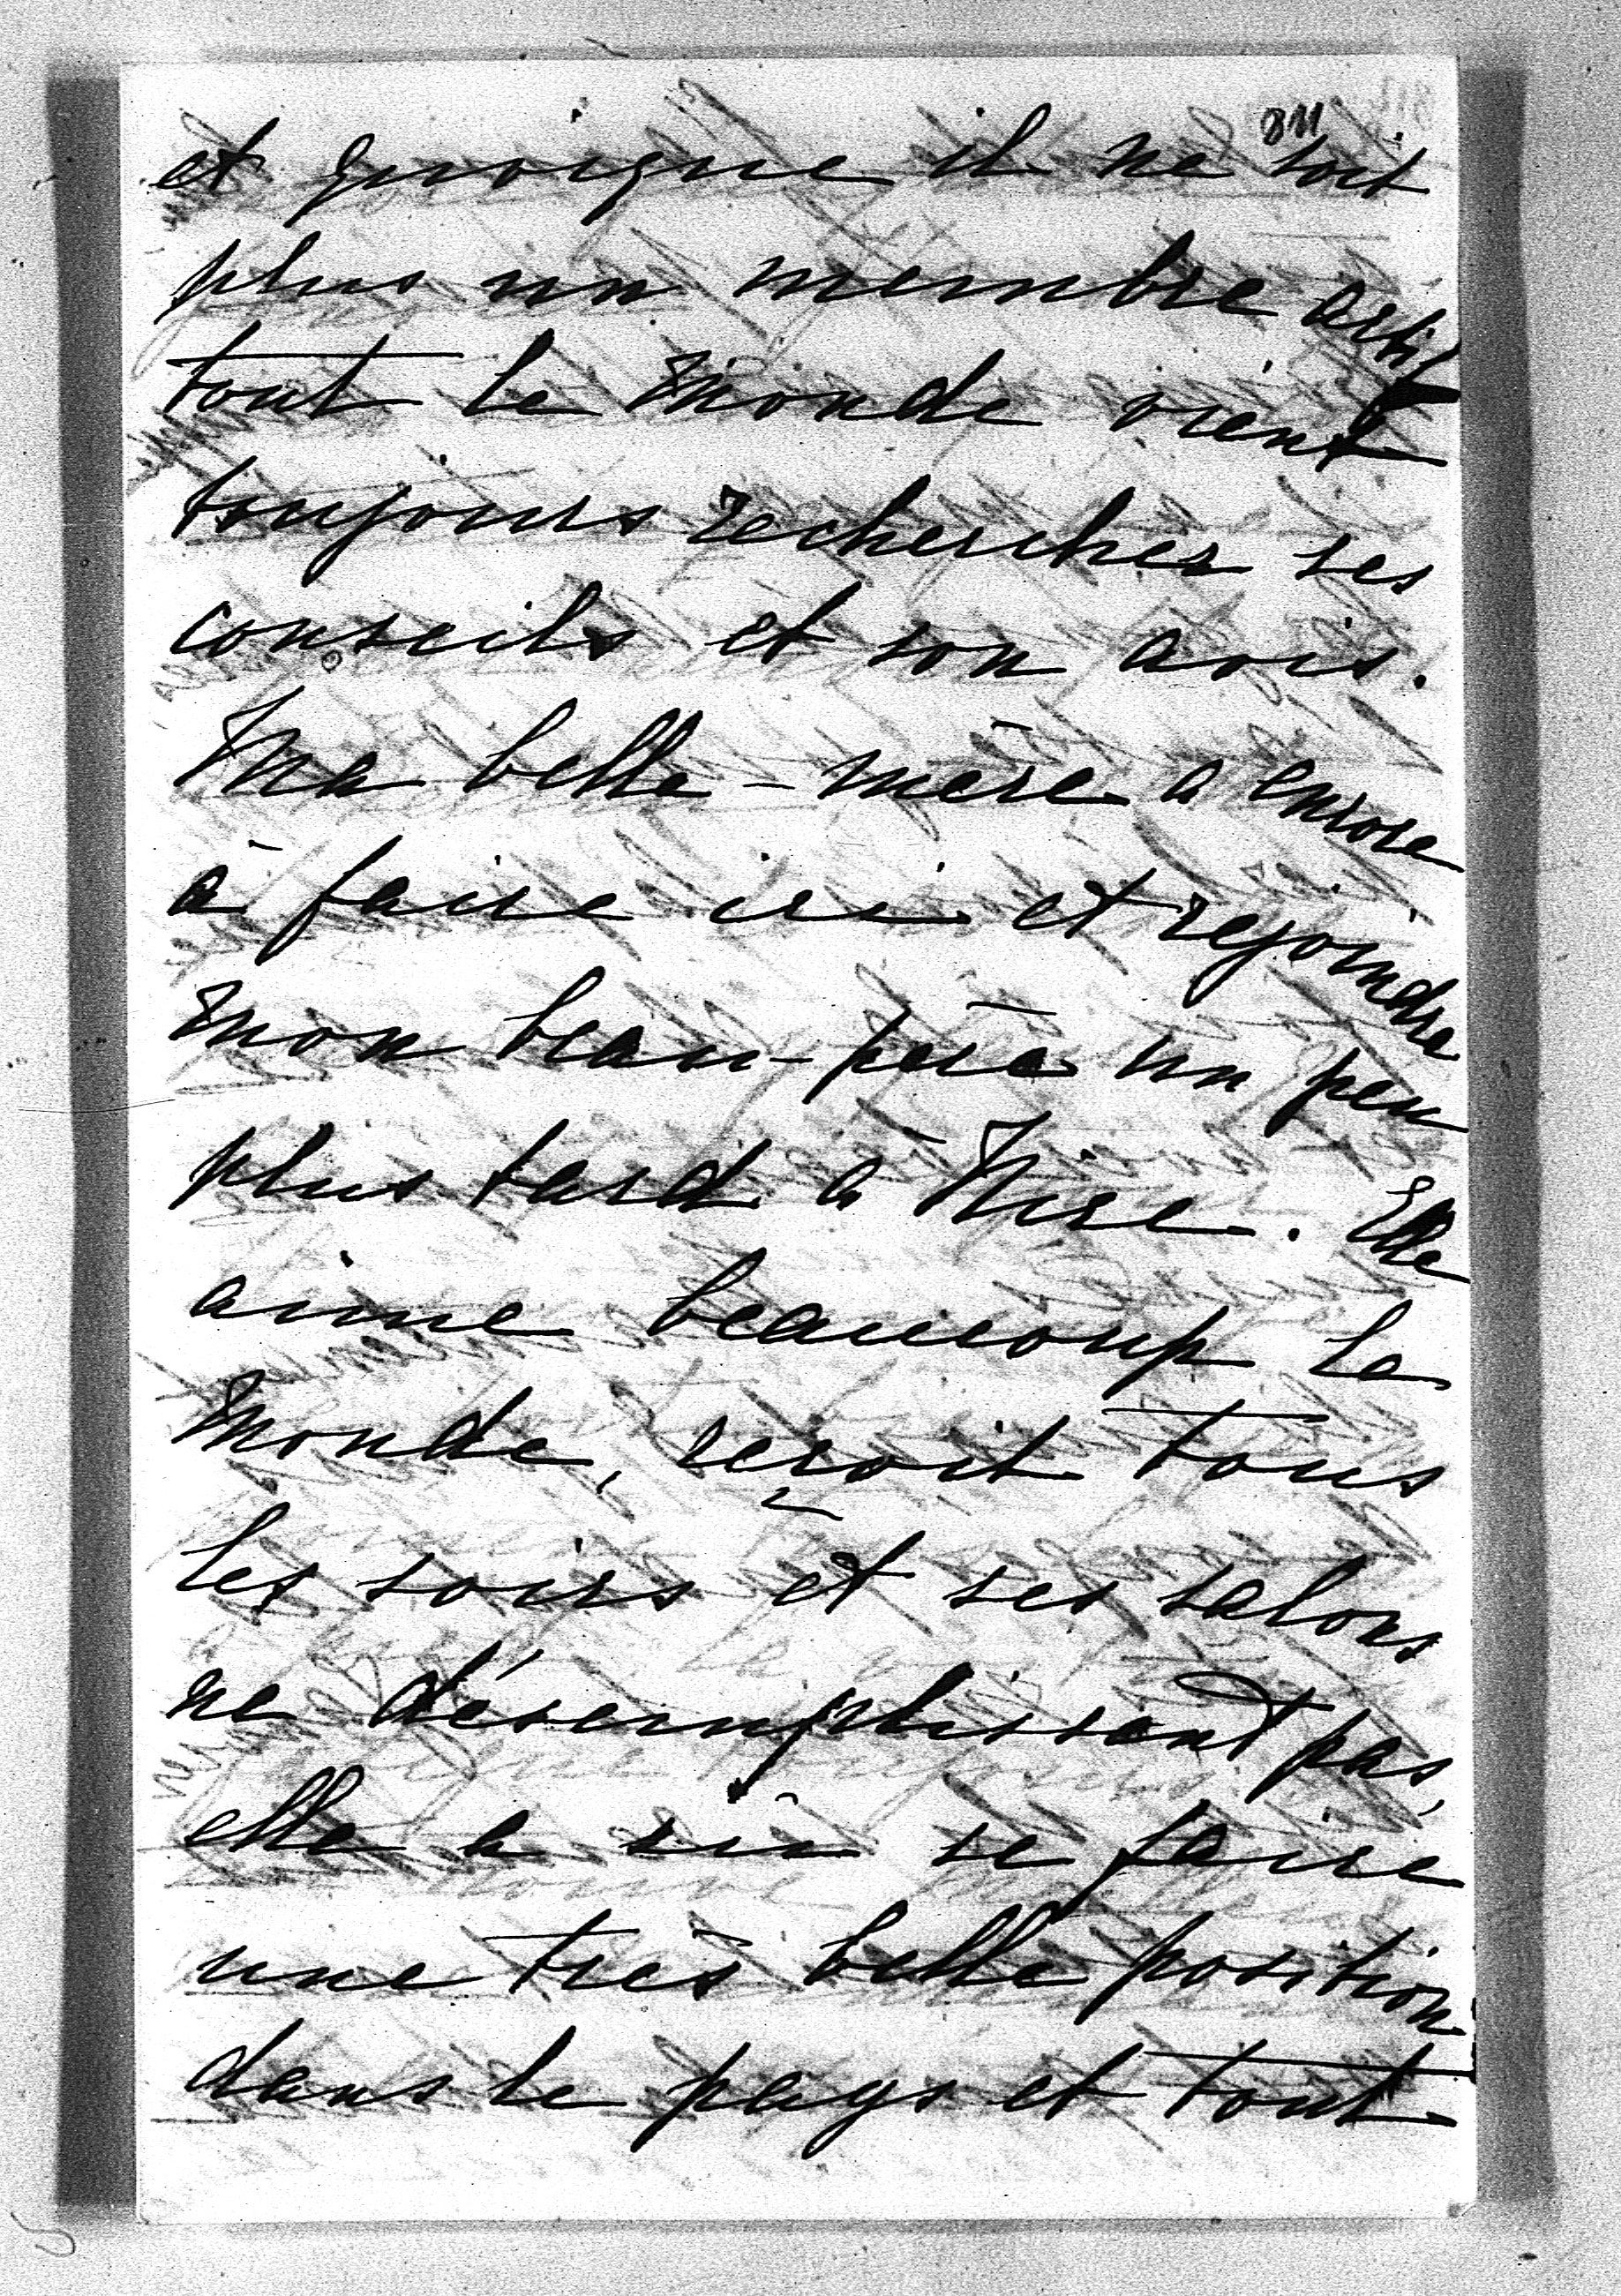 811
et quoique il ne soit
plus un membre actif
tout le monde vient
toujours rechercher ses
conseils et son avis.
Ma belle-mère a encore
à faire ici et rejoindra
mon beau-père un peu
plus tard à Nice. Elle
aime beaucoup le
monde, reçoit tous
les soirs et ses salons
ne désemplissent pas,
elle a sû se faire
une très belle position
dans le pays et tout